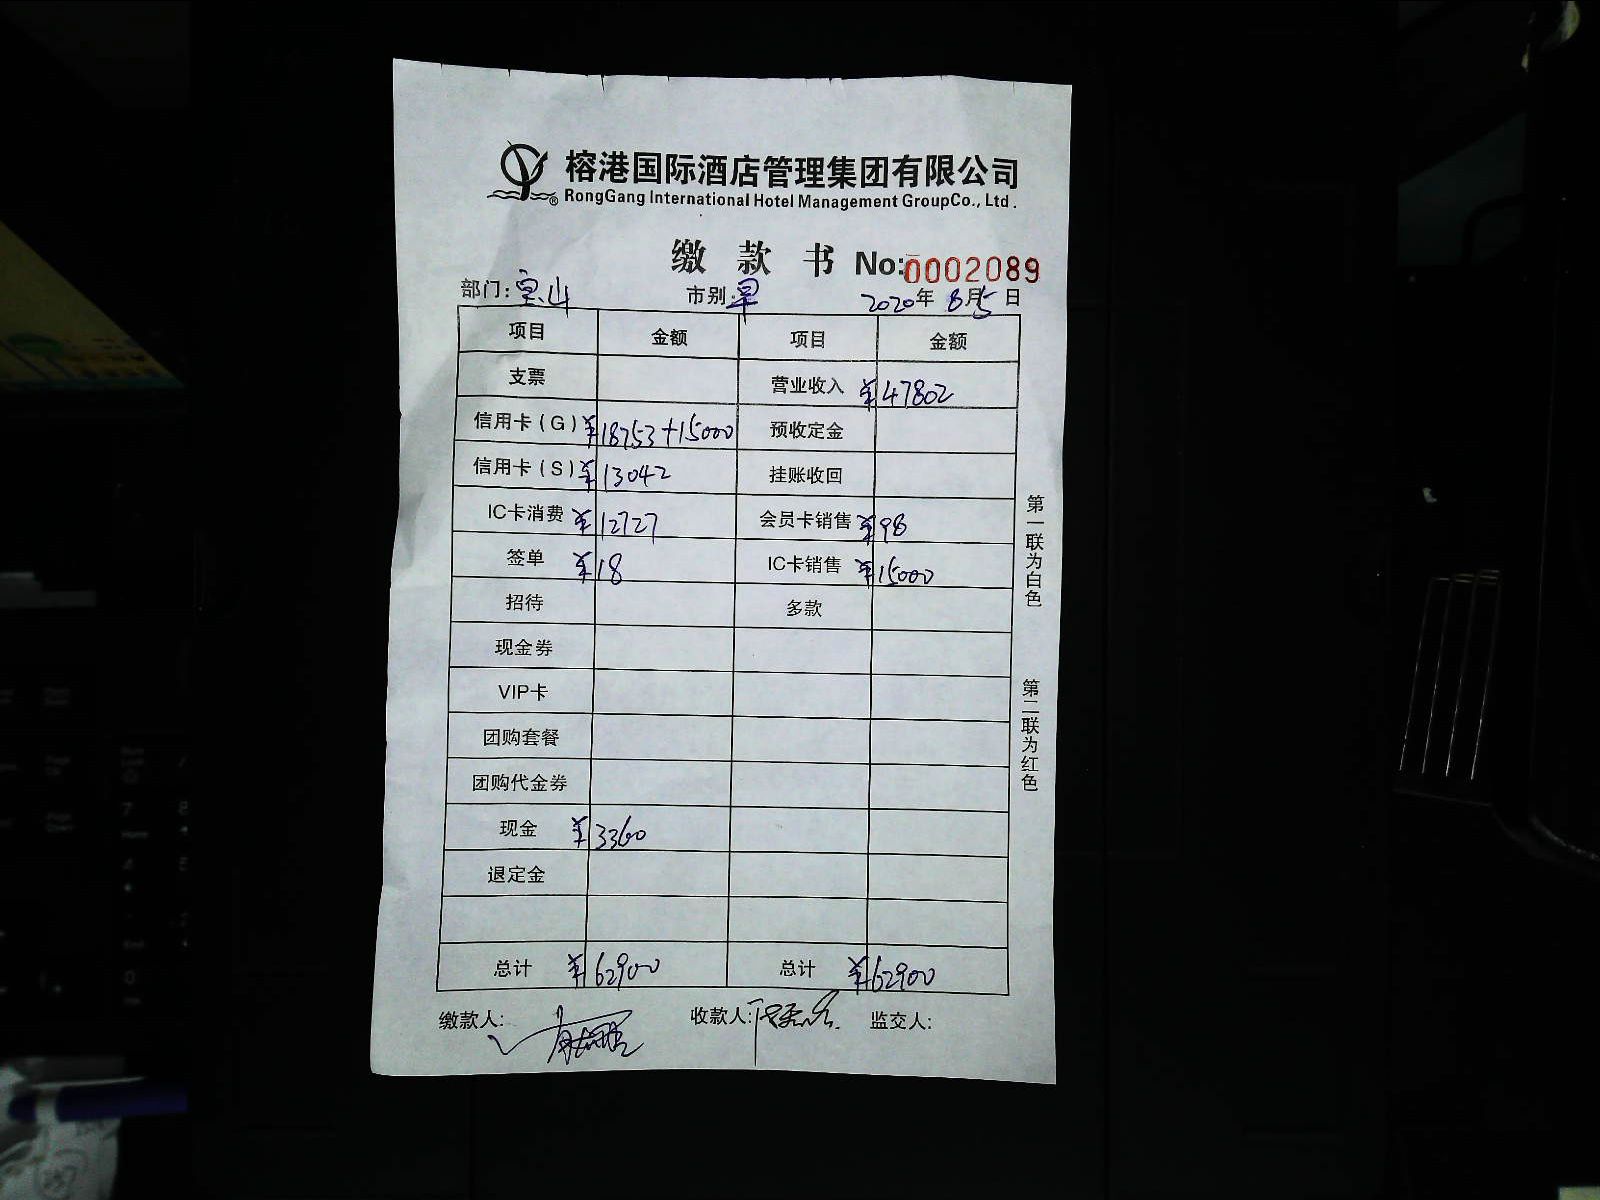 榕港国际酒店管理集团有限公司
RongGang International Hotel Management GroupCo., Ltd.
缴款书 No:0002089
部门: 宝山 市别: 早 2020年8月5日
项目 金额 项目 金额
支票 营业收入 ¥47802
信用卡(G) ¥18753+15000 预收定金
信用卡(S) ¥13042 挂账收回
IC卡消费 ¥12727 会员卡销售 ¥98
签单 ¥18 IC卡销售 ¥15000
招待 多款
现金券
VIP卡
团购套餐
团购代金券
现金 ¥3360
退定金
总计 ¥62900 总计 ¥62900
缴款人: 收款人: 监交人:
第一联为白色
第二联为红色